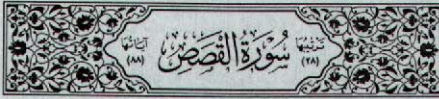 ترتيبها (٢٨) سُورَةُ القَصَصِ آياتها (٨٨)